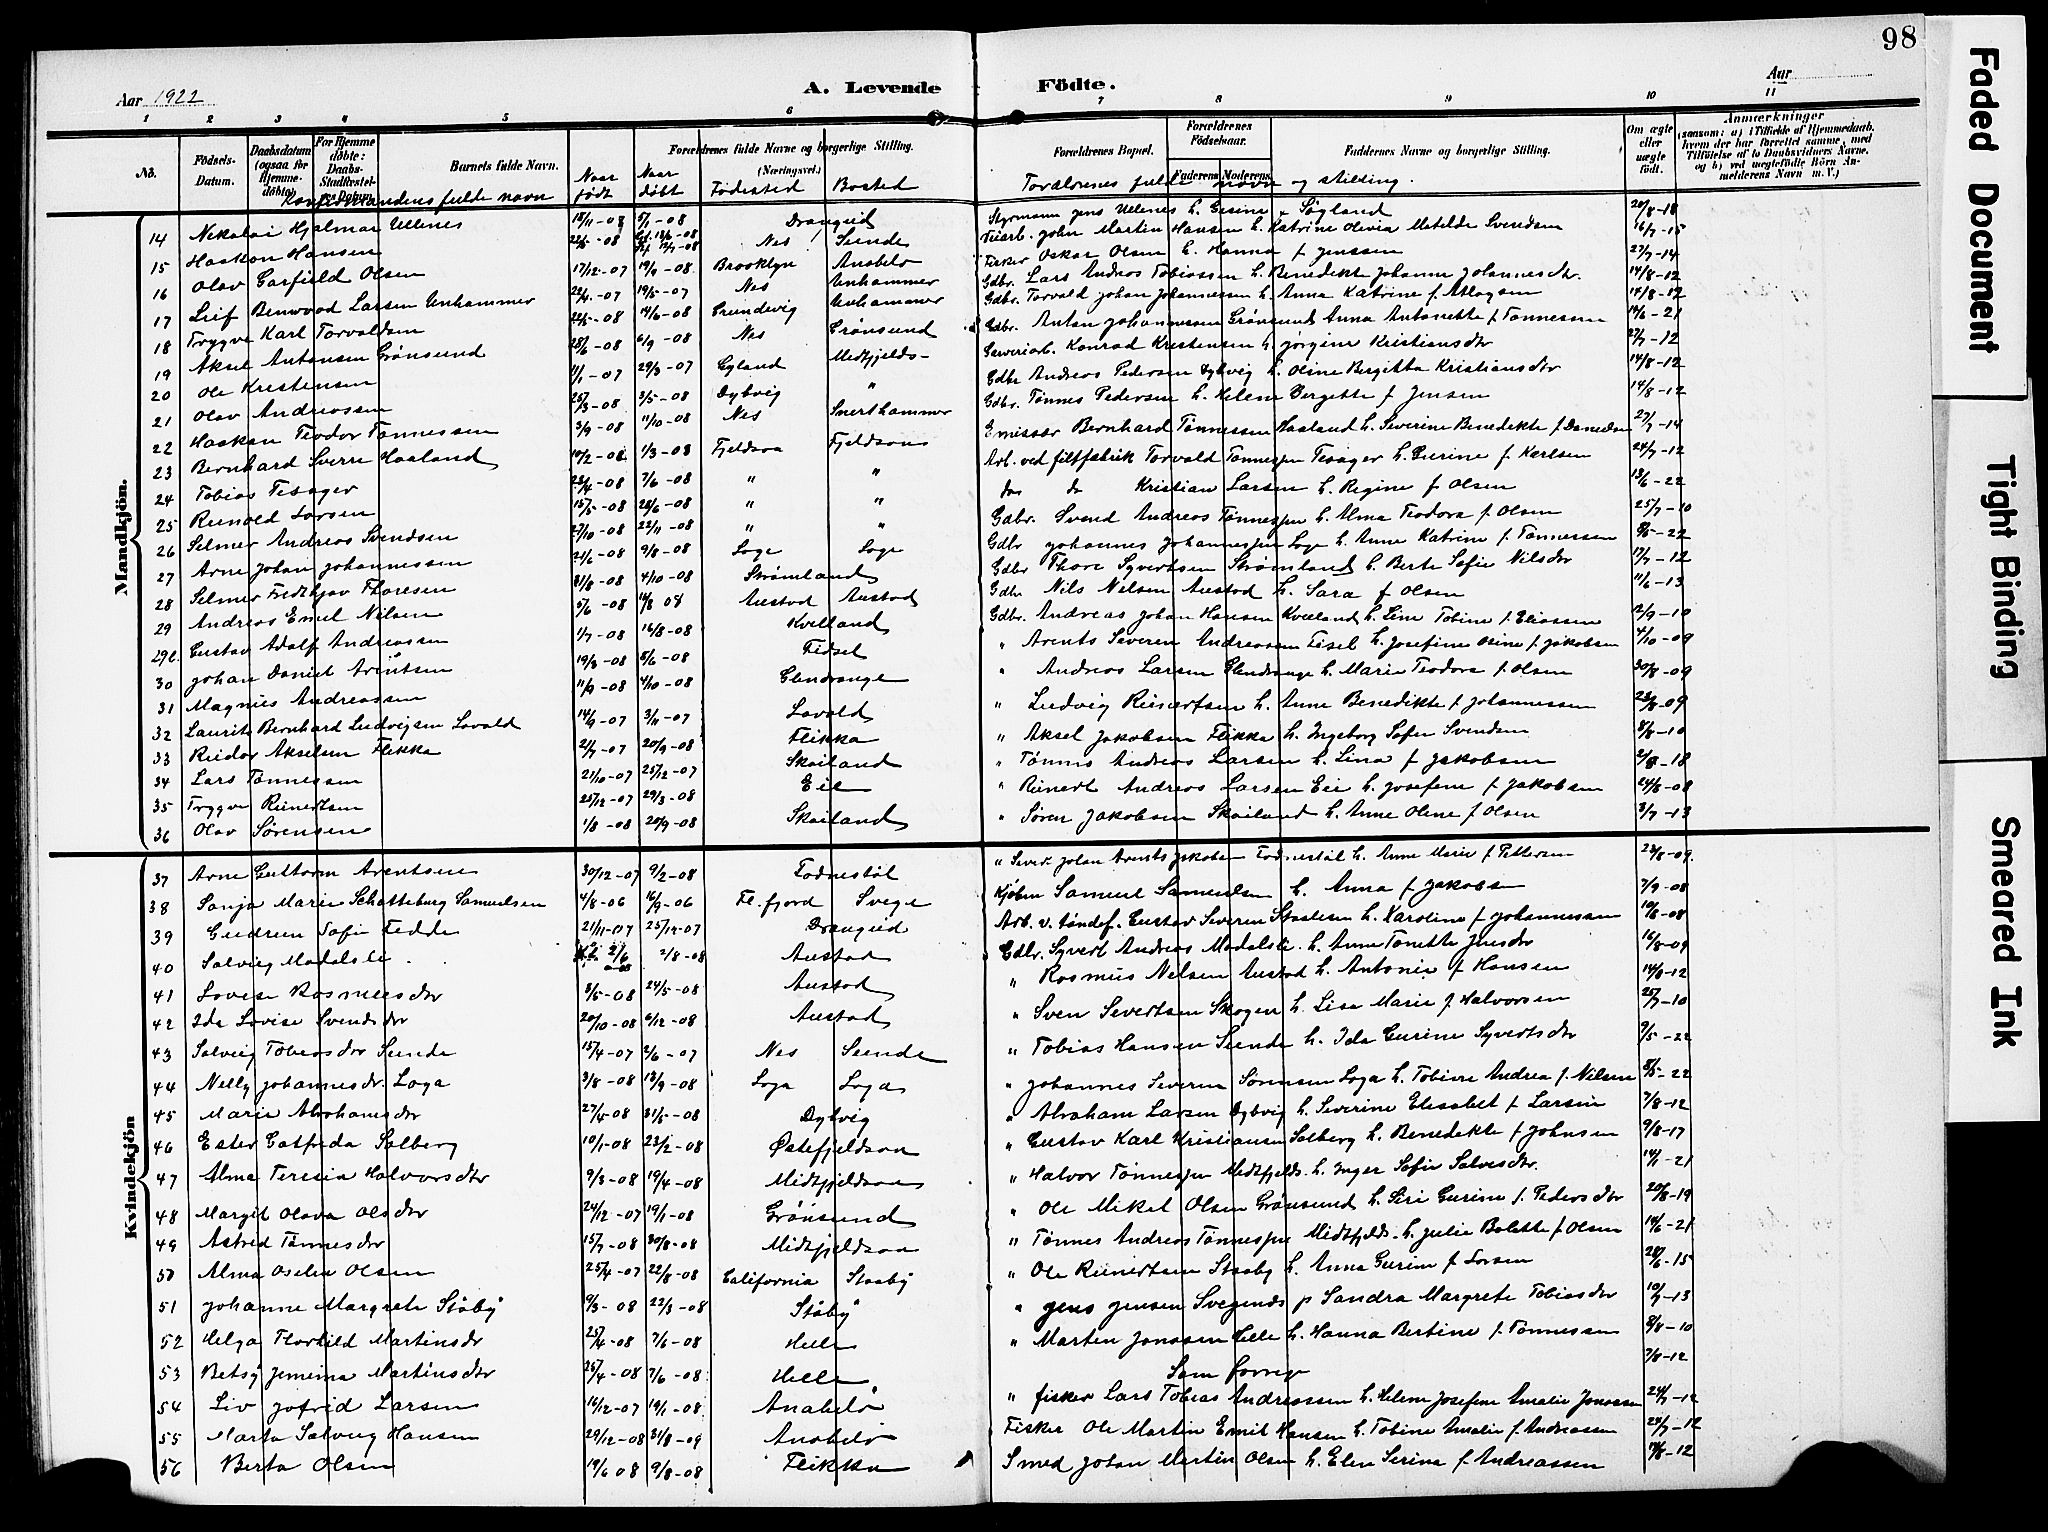 98
Aar 1922
A. Levende
Fødte.
Aar
1 2 3 4 5 6 7 8 9 10 11
No.
Fødsels-Datum.
Daabsdatum (ogsaa for Hjemmedøbte)
For Hjemmedøbte: Daabs-Stadfæstelses-Datum.
Barnets fulde Navn.
Konfirmandens fulde navn
Naar født
Naar døbt
Forældrenes fulde Navne og borgerlige Stilling.
(Næringsvei.)
Fødested
Bosted
Forældrenes Bopæl.
Forældrenes Fødselsaar.
Faderens Moderens
Faddernes Navne og borgerlige Stilling.
Forældrenes fulde navn og stilling.
Om ægte eller uægte født.
Anmærkninger
(saasom: a) i Tilfælde af Hjemmedaab, hvem der har forrettet samme, med Tilføielse af to Daabsvidners Navne, og b) ved uægtefødte Børn Anmelderens Navn m. V.)
Mandkjøn.
14 Nikolai Hjalmar Ullenes 18/11-08 Drangeid Styrmann Jens Ullenes h. Gesine Søyland 20/8-18
15 Haakon Hansen 22/5-08 Nes Sunde John Martin Hansen h. Katrine Olivia Metilde Svendsen 16/7-15
16 Olav Garfield Olsen 17/12-07 19/9-08 Brooklyn Anabelø Fisker Oskar Olsen h. Hanna f Jenssen 27/7-14
17 Leif Benwood Larsen Unhammer 22/4-07 19/5-07 Nes Unhammer Gdbr. Lars Andreas Tobiassen h. Benedikte Johanne Johannesdtr. 14/8-12
18 Trygve Karl Torvaldsen 22/5-08 14/6-08 Unhammer Gdbr. Torvald Johan Johannessen h. Anna Katrine f. Atlagsen 14/8-12
19 Aksel Antonsen Grønsund 28/6-08 6/9-08 Nes Grønsund Gdbr. Anton Johannessen Grønsund Anna Antonette f Tønnessen 14/6-21
20 Ole Kristensen 1/1-07 29/3-07 Gyland Midtfjelds- Konrad Kristensen h. Jørgine Kristiansdtr 27/7-12
21 Olav Andreassen 25/3-08 3/5-08 Dybvig " Gdbr Andreas Pedersen Dybvig h. Oline Bergitta Kristiansdtr 14/8-12
22 Haakon Teodor Tønnessen 3/9-08 11/10-08 Nes Gdbr. Tønnes Pedersen h. Helene Bergette f Jensen 14/8-12
23 Bernhard Sverre Haaland 10/2-08 1/3-08 Fjeldsaa Fjeldsaa Emissær Bernhard Tønnessen Haaland h. Severine Benedikte f Danielsen 27/7-14
24 Tobias Tesager 23/4-08 7/6-08 " " Arb. ved filtfabrik Torvald Tønnessen Tesager h. Gurine f Karlsen 24/7-12
25 Reinold Larsen 15/5-08 28/6-08 " " do do Kristian Larsen h. Regine f Olsen 13/6-22
26 Selmer Andreas Svendsen 27/10-08 22/11-08 " " Gdbr. Svend Andreas Tønnessen h. Alma Teodora f. Olsen 25/7-10
27 Arne Johan Johannessen 21/6-08 9/8-08 Loge Loge Gdbr Johannes Johannessen Loge h. Anne Katrine f. Tønnessen 8/5-22
28 Selmer Fridthjov Thoresen 31/8-08 4/10-08 Strømland Gdbr Thore Syvertsen Strømland h. Berte Sofie Nilsdtr 17/7-12
29 Andreas Emil Nilsen 5/6-08 14/8 08 Austad Austad Gdbr Nils Nelsen Austad h. Sara f Olsen 11/6-13
29b. Gustav Adolf Andreassen 1/7-08 16/8-08 Kvelland Gdbr. Andreas Johan Hansen Kvelland h. Line Tobine f. Eliassen 12/9-10
30 Johan Daniel Arentsen 19/3-08 5/6-08 Fidsel " Arents Severin Andreassen Fisel h. Josefine Osine f. Jakobsen 4/10-09
31 Magnus Andreassen 11/9-08 4/10-08 Glendrange " Andreas Larsen Glendrange h. Marie Teodora f. Olsen 30/8-09
32 Laurits Bernhard Ludvigsen Lovald 14/9-07 3/11-07 Lovald " Ludvig Reinertsen h. Anne Benedikte f. Johannessen 23/8-09
33 Reidar Akselsen Flikka 2/7-07 20/9-08 Flikka " Aksel Jakobsen Flikka h. Ingeborg Sofie Svendsen 8/8-10
34 Lars Tønnessen 21/10-07 25/12-07 Skailand " Tønnes Andreas Larsen h. Lina f Jakobsen 2/8-18
35 Trygve Reinertsen 25/12-07 29/3-08 Eie " Reinert Andreas Larsen Eie h. Josefine f Jakobsen 24/8-08
36 Olav Sørensen 1/8-08 20/9-08 Skailand " Søren Jakobsen Skailand h. Anne Oline f Olsen 3/7-13
Kvindekjøn
37 Arne Guttorm Arentsen 30/12-07 9/2-08 Fodnestøl " Johan Arents Jakobsen Fodnestøl h. Anne Marie f Pettersen 23/8-09
38 Sanja Marie Schatteburg Samuelsen 4/8-06 16/9-06 Fl. fjord Svege Kjøbm Samuel Samuelsen h. Anna f Jakobsen 7/9-08
39 Gudrun Sofie Fedde 21/11-07 25/12-07 Drangeid Arb. v. tøndef. Gustav Severin Staalesen h. Karoline f Johannessen 10/8-08
40 Solveig Modalsli 2/8-08 Austad Gdbr. Syvert Andreas Modalsli h. Anne Tonette Jensdtr 16/8-09
41 Lovise Rasmusdtr 3/5-08 24/5-08 Austad " Rasmus Nelsen Austad h. Antonie f Hansen 14/8-12
42 Ida Lovise Svendsdtr 20/10-08 6/12-08 Austad " Sven Severtsen Skogen h. Lise Marie f Halvorsen 25/7-10
43 Solveig Tobiasdtr Sunde 15/4-07 2/6-07 Nes Sunde " Tobias Hansen Sunde h. Ida Gurine Syvertsdtr 9/5-22
44 Nelly Johannesdr. Loga 3/8-08 13/9-08 Loga Loga " Johannes Severin Sørensen Loga h. Tobine Andrea f. Nilsen 8/5-22
45 Marie Abrahamsdtr 27/4-08 31/5-08 Dybvig " Abraham Larsen Dybvig h. Severine Elisabet f Larsen 7/8-12
46 Ester Gotfreda Solberg 10/1-08 23/2-08 Østefjeldsaa " Gustav Karl Kristiansen Solberg h. Benedikte f Johnsen 9/8-17
47 Alma Teresia Halvorsdtr 9/3-08 19/4-08 Midtfjeldsaa " Halvor Tønnessen Midtfjelds. h. Inger Sofie Salvesdtr. 14/1-21
48 Margit Olava Olsdtr 24/12-07 19/1-08 Grønsund " Ole Mikal Olsen Grønsund h. Siri Gurine f. Pedersdtr 20/8-19
49 Astrid Tønnesdtr 15/7-08 30/8-08 Midtfjeldsaa " Tønnes Andreas Tønnessen Midtfjelds. h. Julie Bolette f Olsen 14/6-21
50 Alma Oselia Olsen 25/4-07 22/8-08 California Staaby " Ole Reinertsen Staaby h. Anna Gurine f Larsen 28/6-15
51 Johanne Margrete Ståby 9/3-08 22/3-08 Ståby " Jens Jensen Svegends p Sandra Margrete Tobiasdtr 10/7-13
52 Helga Thorhild Martinsdr 25/4-08 7/6-08 Helle " Martin Jonassen Helle h. Hanna Bertine f. Tønnessen 8/8-10
53 Betsy Jemima Martinsdtr 25/4-08 7/6-08 Helle Som forrige 7/8-12
54 Liv Jofrid Larsen 14/12-07 19/1-08 Anabelø " fisker Lars Tobias Andreassen h. Helene Josefine Amalie Jonassen 24/7-12
55 Marta Solveig Hansen 29/12-08 31/8-09 Anabelø Fisker Ole Martin Emil Hansen h. Tobine Amalie f. Andreassen 24/7-12
56 Berta Olsen 19/6 08 9/8-08 Flikka Smed Johan Martin Olsen h. Elen Serina f Andreassen
Faded Document
Tight Binding
Smeared Ink